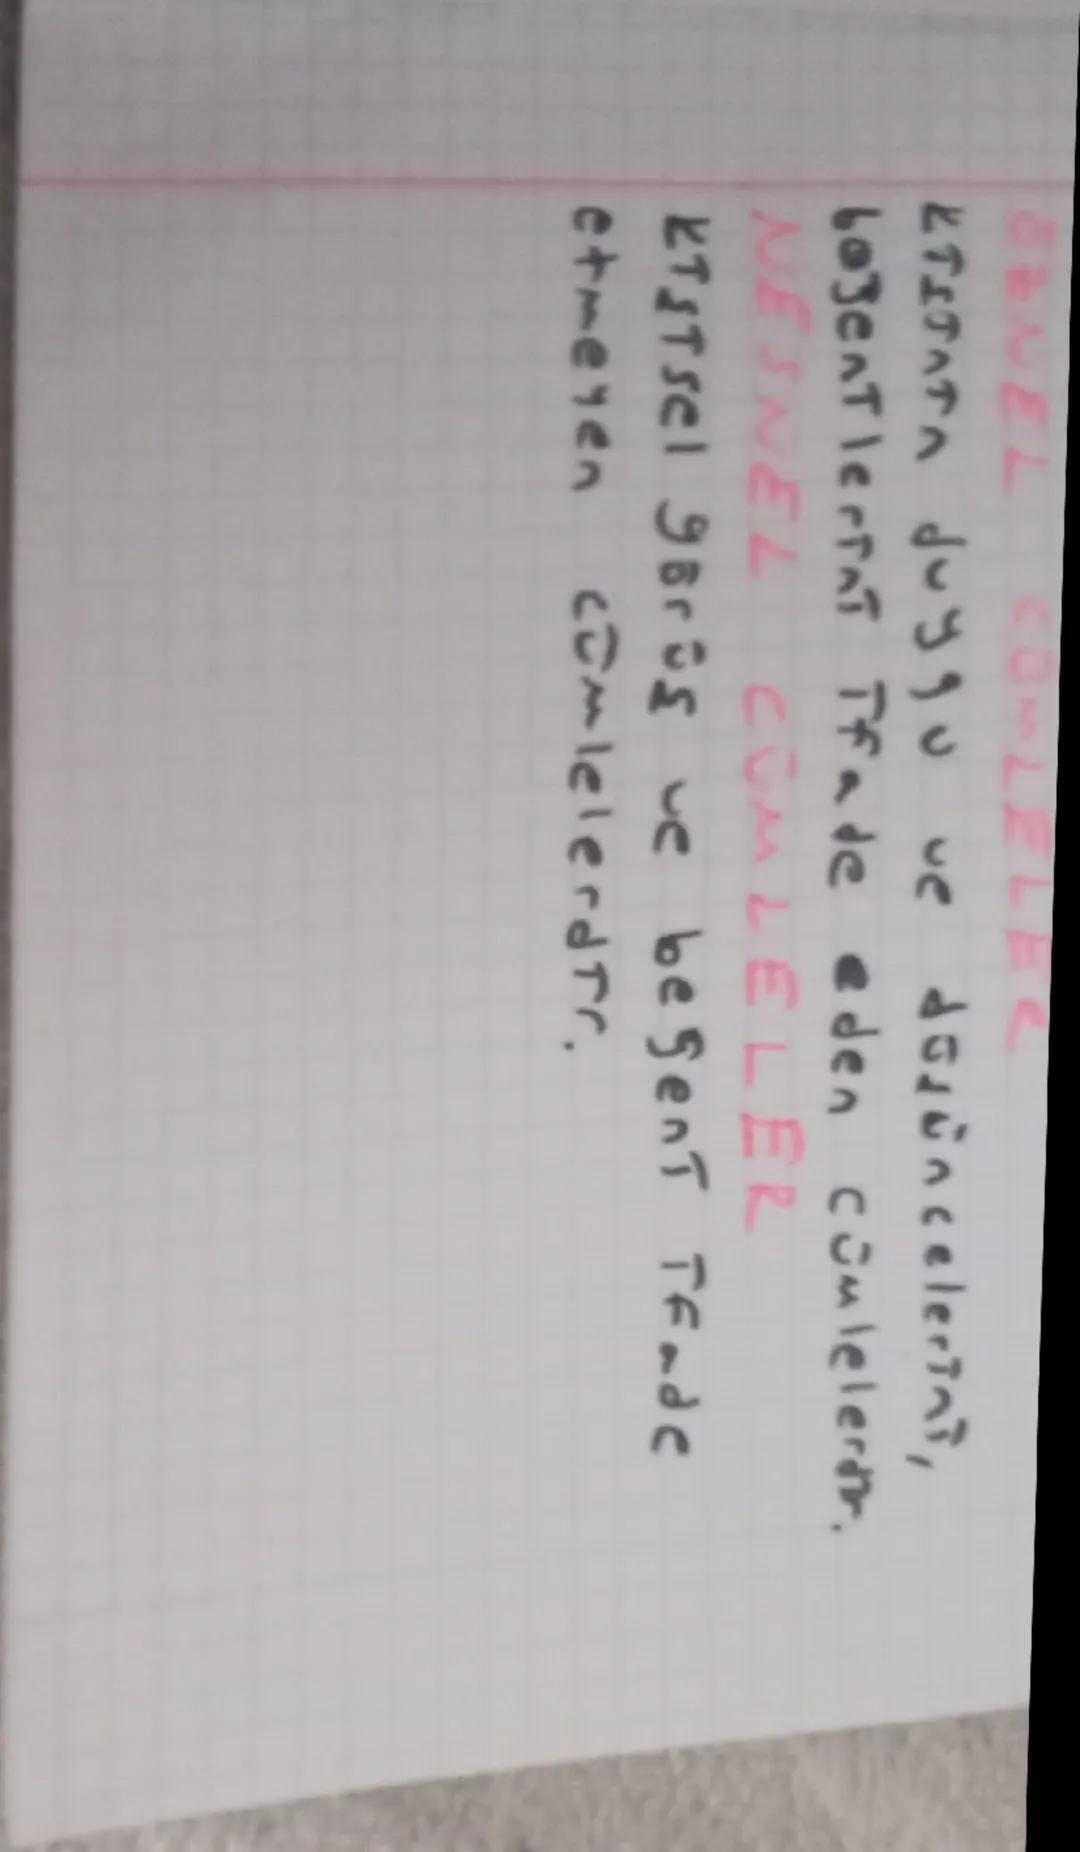 ÖZNEL CÜMLELER
Kişinin duygu ve düşüncelerini,
beğenilerini ifade eden cümlelerdir.
NESNEL CÜMLELER
Kişisel görüş ve beğeni ifade
etmeyen cümlelerdir.